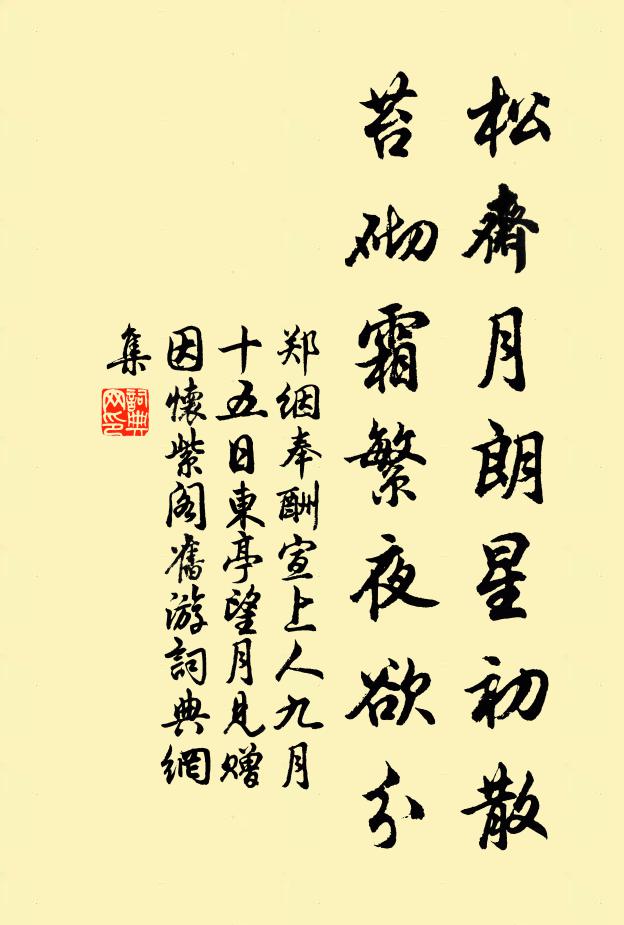 松齋月朗星初散
苔砌霜繁夜欲分
郑絪奉酬宣上人九月
十五日東亭望月見赠
因懷紫阁舊游詞典網
集
詞典网印